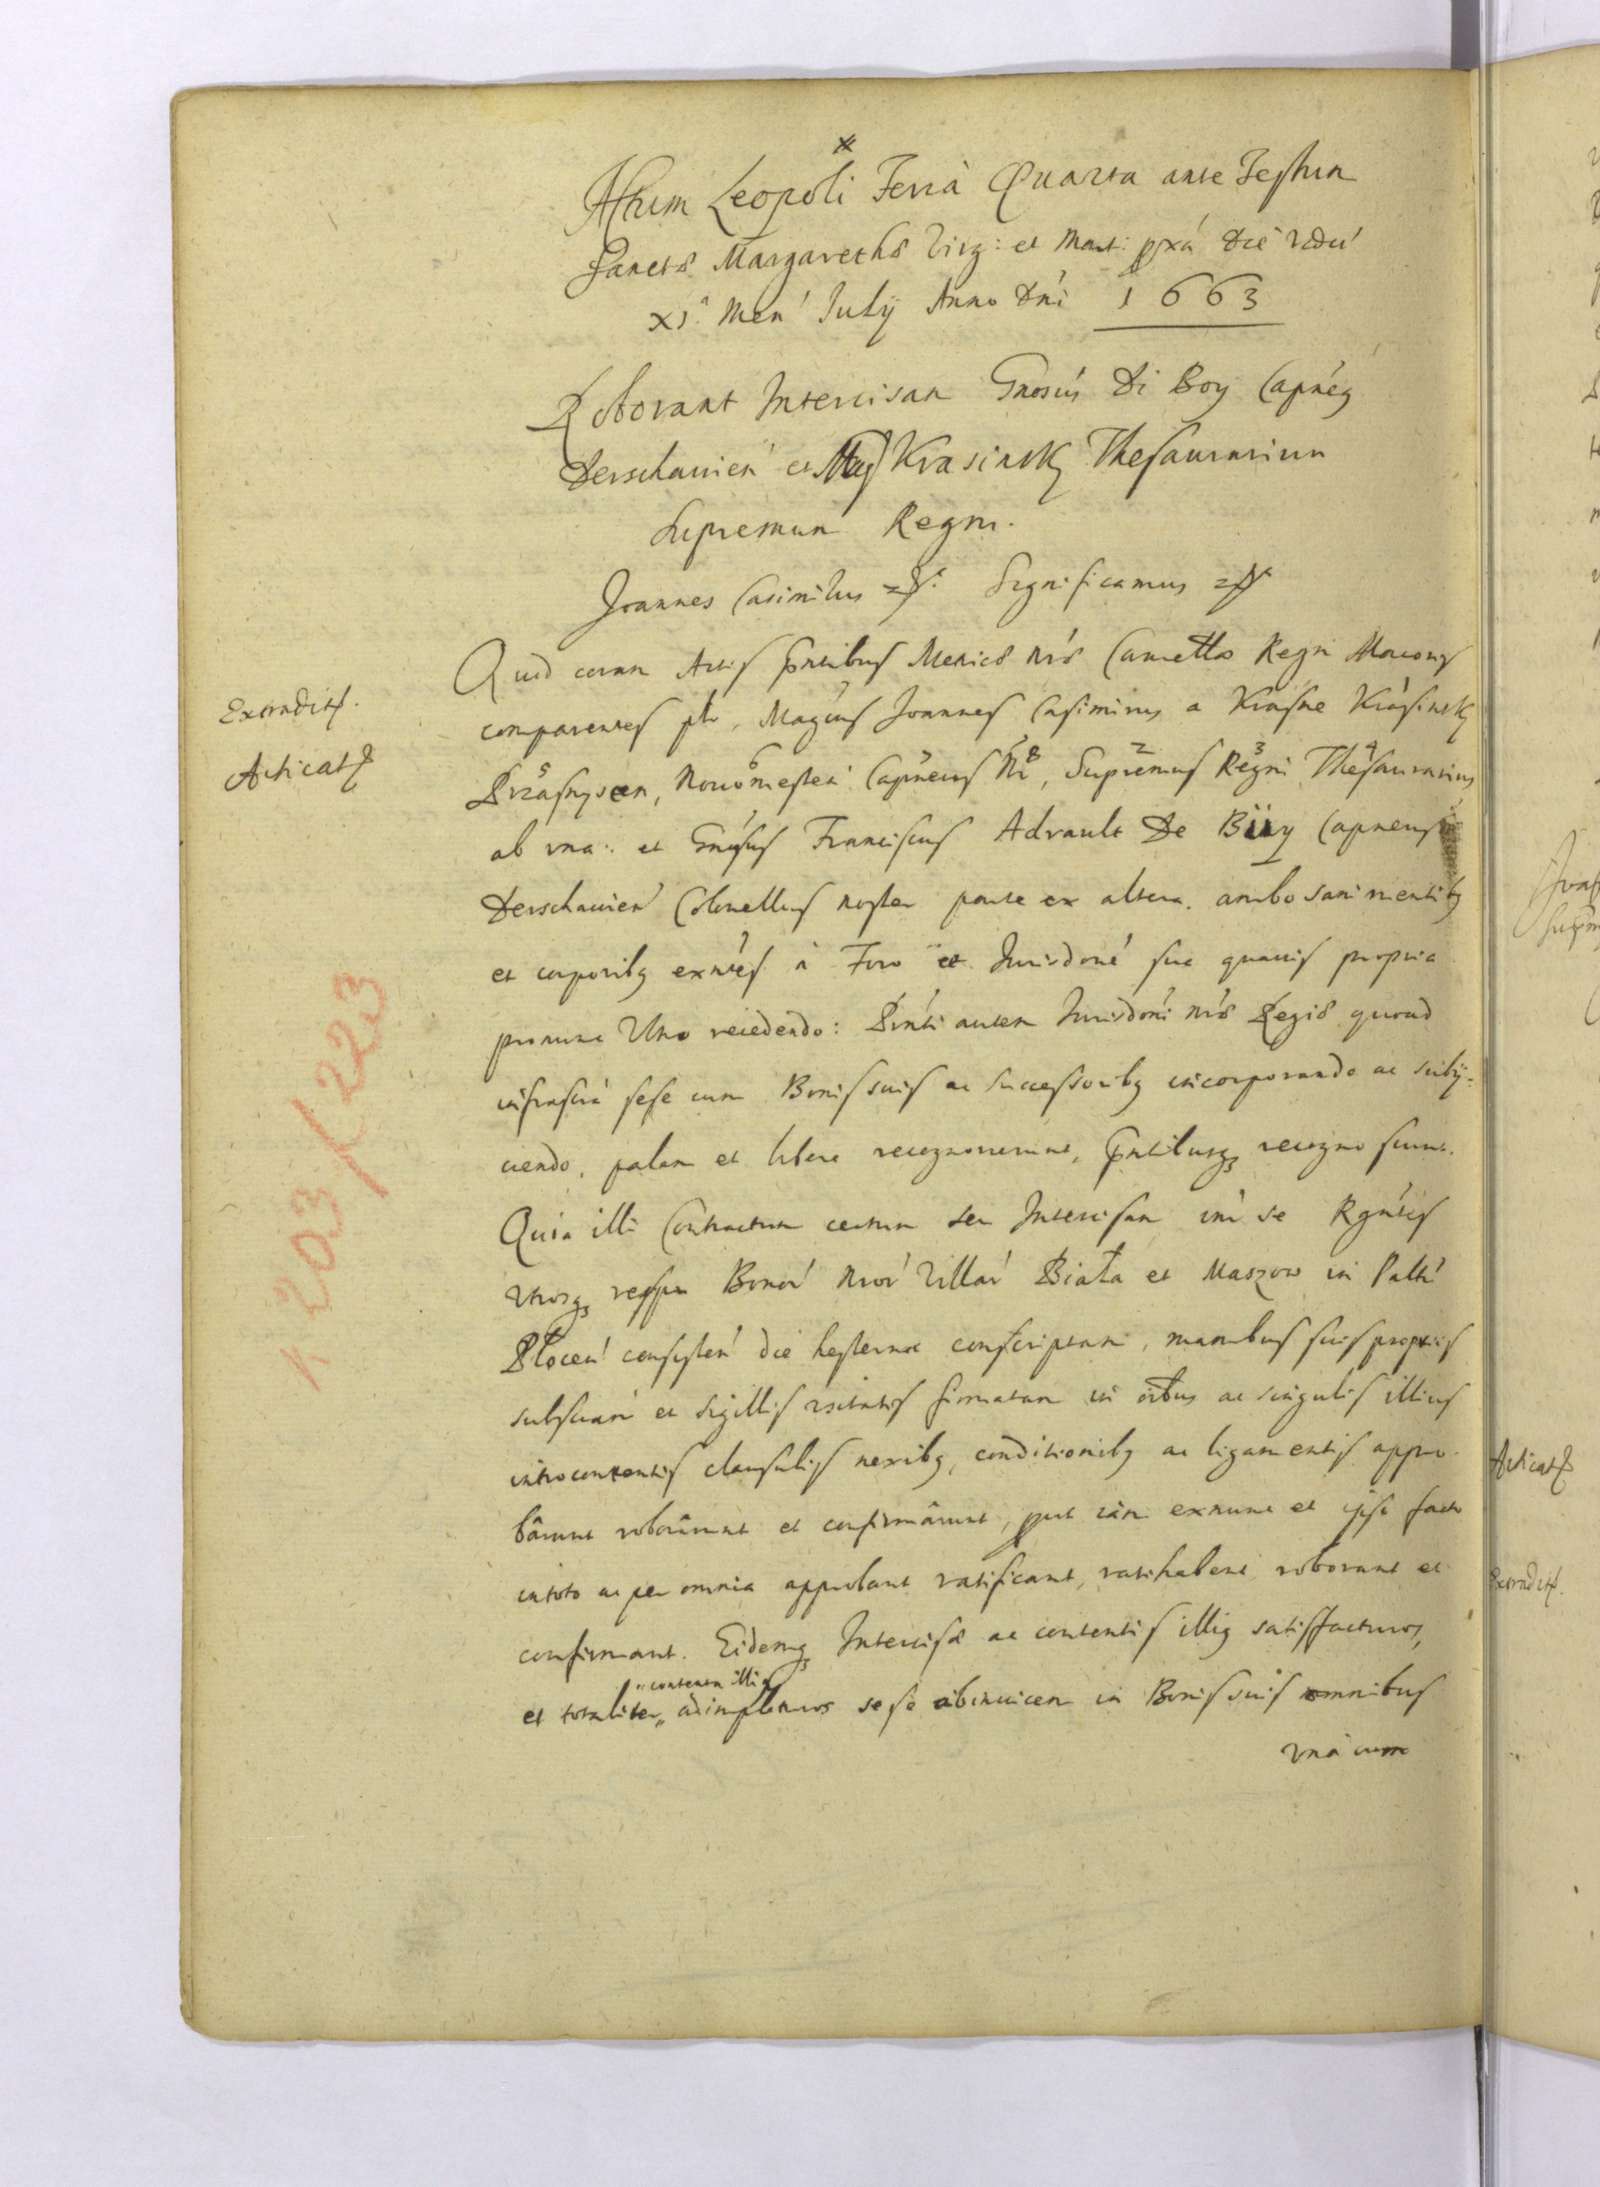 Actum Leopoli Feria Quarta ante Festum
Sanctæ Margarethæ Virg: et Mart: pxá Die vdu'
XI. Men' July Anno Dni 1663
Roborant Intercisam Gnosus Di Boy Capneus
Derschauien' et Mag Krasinsky Thesaurarium
Supremum Regni.
Joannes Casimirus Significamus
Quod coram Actis Pntibus Metricæ nræ Cancellæ Regni Maioris
Extraditt.
Acticatt
comparentes Magcus Joannes Casimirus a Krasne Krasinsky
Przasnyscen, Nouomiesten' Capneus Nr, 2 Supremus 3 Regni 4 Thesaurarius
ab vna: et Gnosus Franciscus Advault De Buy Capneus
Derschauien' Colonellus noster parte ex altera. ambo sani mentibq
et corporibq exntes à Foro et Jurisdone sua quauis propria
pronunc Vtro recedendo: Pnti autem Jurisdoni nræ Regiæ quoad
infrascra sese cum Bonis suis ac successoribq incorporando ac subij=
ciendo, palam et libere recognouerunt, Pntibusq recognoscunt.
Quia illi Contractum certum seu Intercisam int' se Rgntes
vtrosq respu Bonor' nror' Villar' Biała et Maszow in Palttu
Płocen' consisten' die hesterna conscriptam, manibus suis proprijs
subscram et sigillis vsitatis firmatam in oibus ac singulis illius
introcontentis clausulis nexibq, conditionibq ac ligamentis appro-
bârunt roborârunt et confirmârunt, put eam exnunc et ipso facto
intoto ac per omnia approbant ratificant, ratihabent roborant et
confirmant. Eidemq Intercisæ ac contentis illiq satisfacturos,
"contenta illiq
et totaliter, adimpleturos sese abinuicem in Bonis suis omnibus
vná cum
K 203/223
Acticatt
Extraditt.